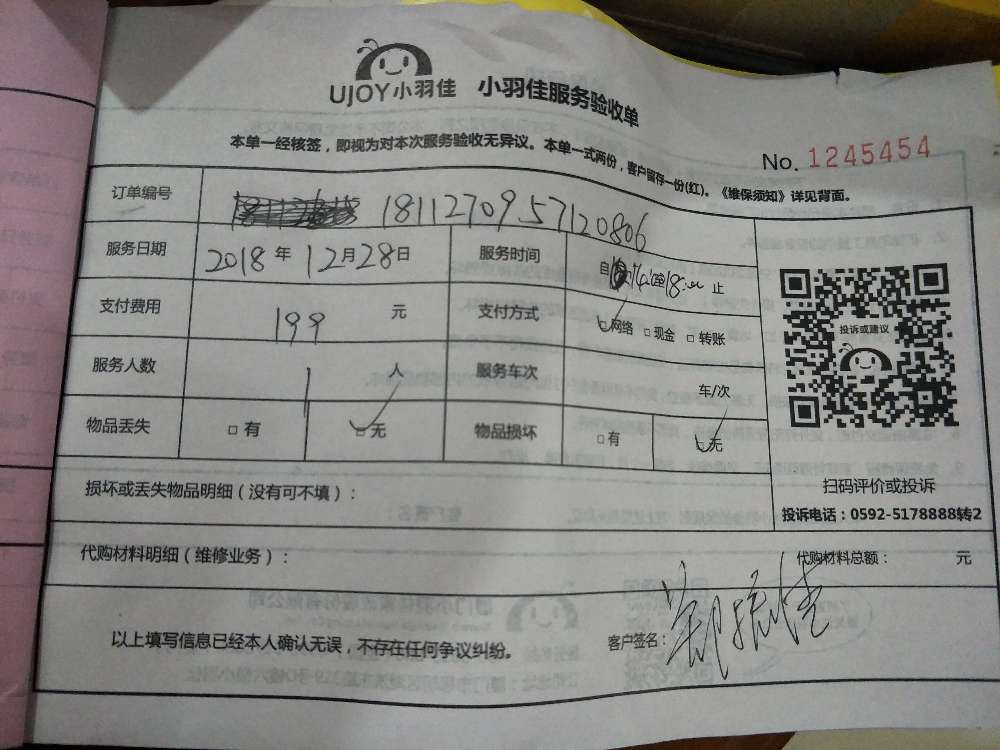 UJOY小羽佳 小羽佳服务验收单
本单一经核签，即视为对本次服务验收无异议。本单一式两份，客户留存一份(红)。《维保须知》详见背面。
No. 1245454
订单编号 1811270957120806
服务日期 2018年12月28日 服务时间 自14:至18:00止
支付费用 199元 支付方式 □网络 □现金 □转账
服务人数 1人 服务车次 车/次
物品丢失 □有 □无 物品损坏 □有 □无
投诉或建议
扫码评价或投诉
投诉电话：0592-5178888转2
损坏或丢失物品明细（没有可不填）：
代购材料明细（维修业务）： 代购材料总额： 元
以上填写信息已经本人确认无误，不存在任何争议纠纷。 客户签名：